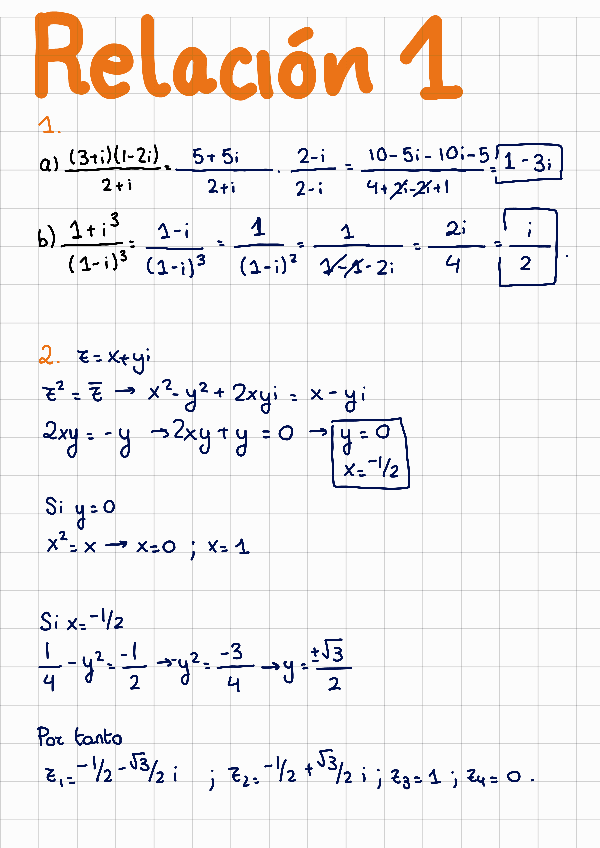 Relación 1
1.
a) (3+i)(1-2i)/2+i = 5+5i/2+i · 2-i/2-i = 10-5i-10i-5/4+2i-2i+1 = 1-3i
b) 1+i³/(1-i)³ = 1-i/(1-i)³ = 1/(1-i)² = 1/1-1-2i = 2i/4 = i/2.
2. z=x+yi
z² = z̄ → x²-y²+2xyi = x-yi
2xy=-y → 2xy+y=0 → y=0
x=-1/2
Si y=0
x²=x → x=0 ; x=1
Si x=-1/2
1/4 - y² = -1/2 → -y² = -3/4 → y = ±√3/2
Por tanto
z₁=-1/2-√3/2 i ; z₂=-1/2+√3/2 i ; z₃=1 ; z₄=0.